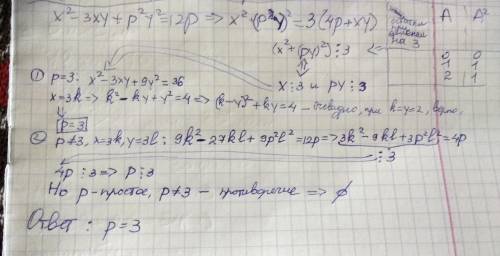 x² - 3xy + p²y² = 12p => x² + (py)² = 3(4p + xy)
(x² + (py)²) ⋮ 3 <=
остатки
деления
на 3
A A²
0 0
1 1
2 1
① p=3: x² - 3xy + 9y² = 36
x ⋮ 3 и py ⋮ 3
x=3k => k² - ky + y² = 4 => (k-y)² + ky = 4 – очевидно, при k=y=2, верно.
p=3
② p≠3, x=3k, y=3l: 9k² - 27kl + 9p²l² = 12p => 3k² - 9kl + 3p²l² = 4p
⋮ 3
4p ⋮ 3 => p ⋮ 3
Но p - простое, p≠3 – противоречие => ∅
Ответ: p = 3